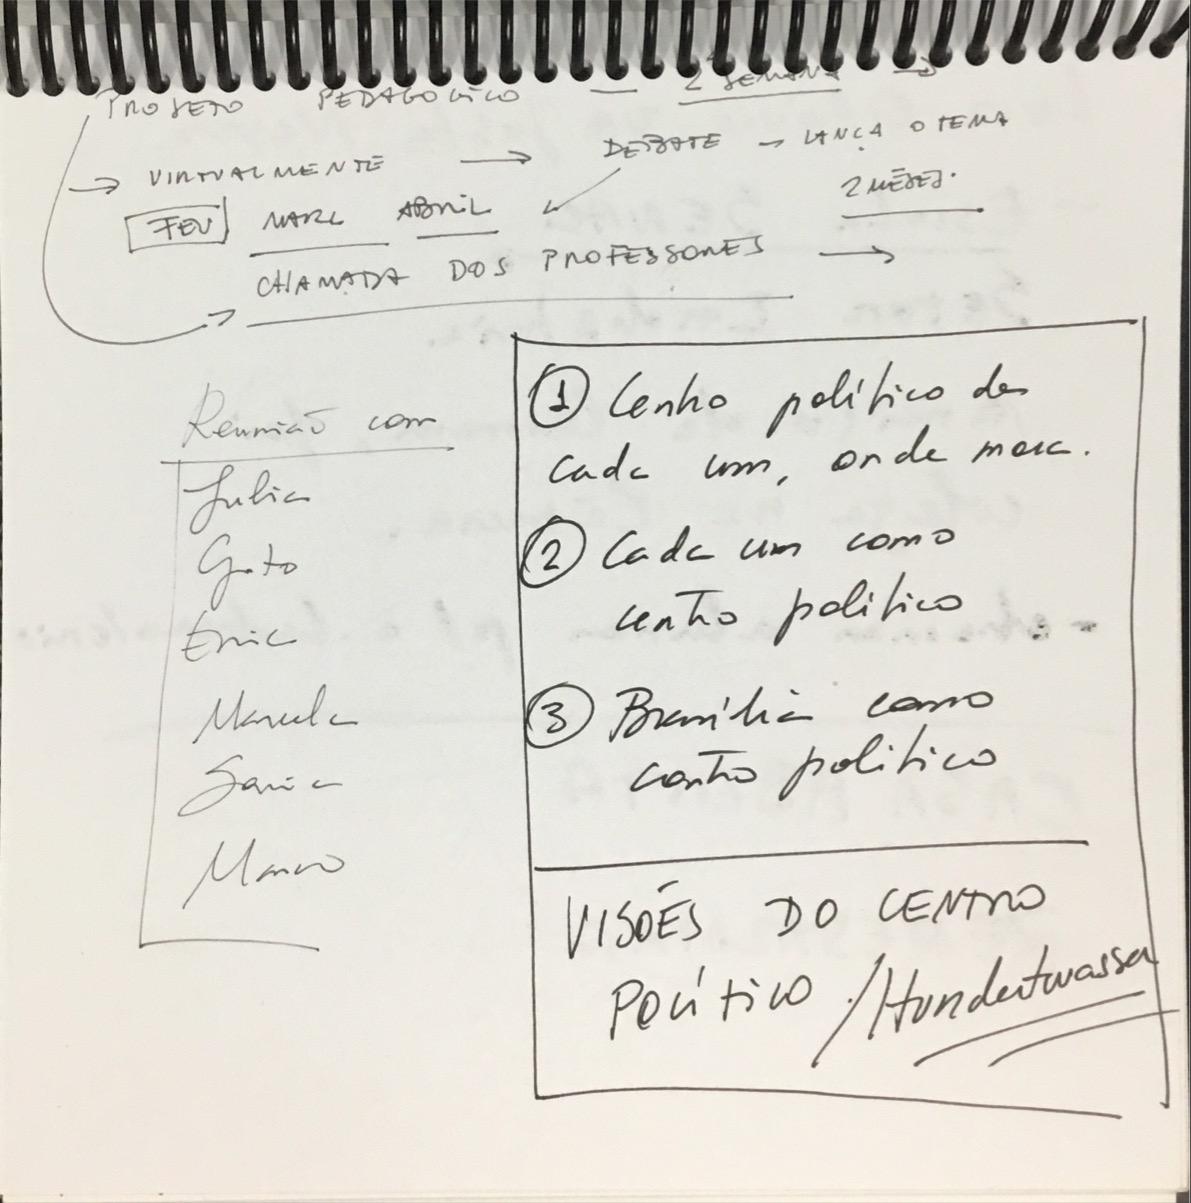 PROJETO PEDAGÓGICO — 2ª SEMANA →
→ VIRTUALMENTE → DEBATE → LANÇA O TEMA
FEV MARC ABRIL 2 MESES.
CHAMADA DOS PROFESSORES →
Reunião com
Julia
Gato
Eric
Marcela
Sania
Marco
1 Centro político de
cada um, onde mora.
2 Cada um como
centro político
3 Brasília como
centro político
VISÕES DO CENTRO
POLÍTICO / Hundertwasser